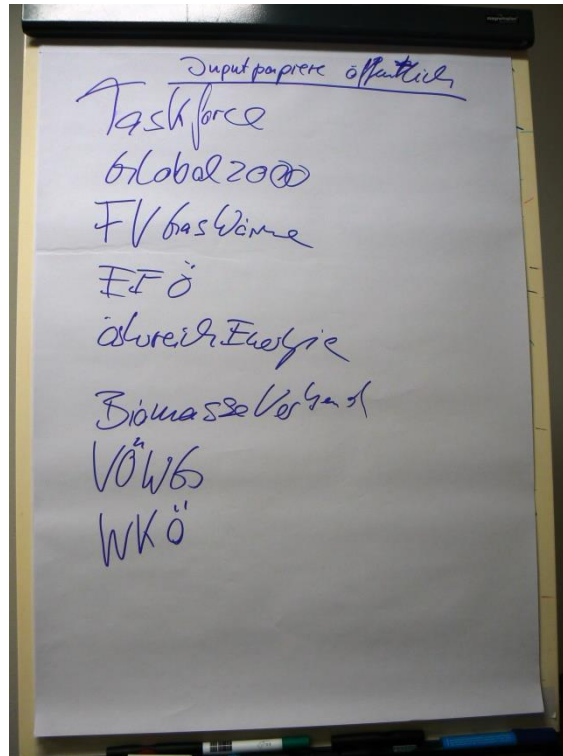 Inputpapiere öffentlich
Taskforce
Global2000
FV GasWärme
EEÖ
österreichEnergie
BiomasseVerband
VÖWG
WKÖ